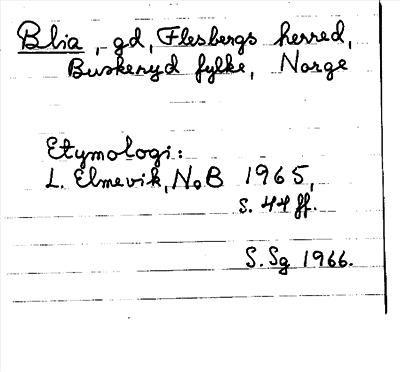 Blia, gd, Flesbergs herred,
Buskeryd fylke, Norge
Etymologi:
L. Elmevik, NoB 1965,
s. 44 ff.
S. Sg 1966.